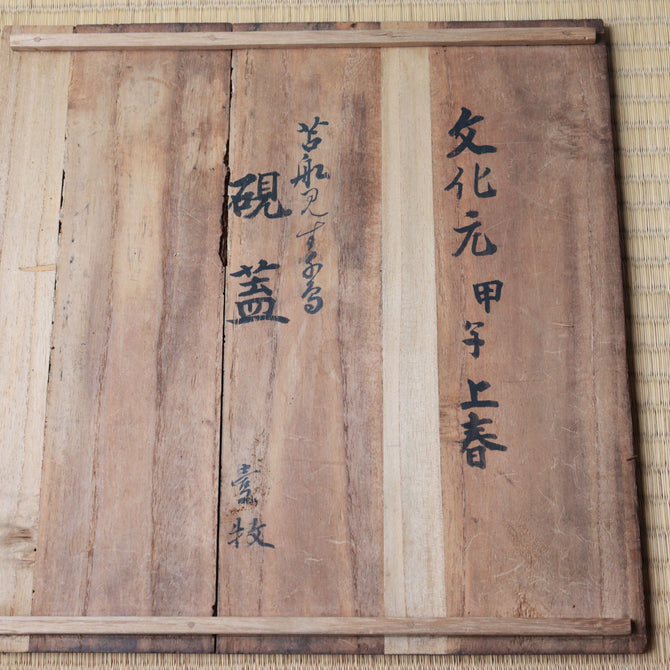 文化元 甲子 上春
苫船見す千鳥
硯蓋
壹枚